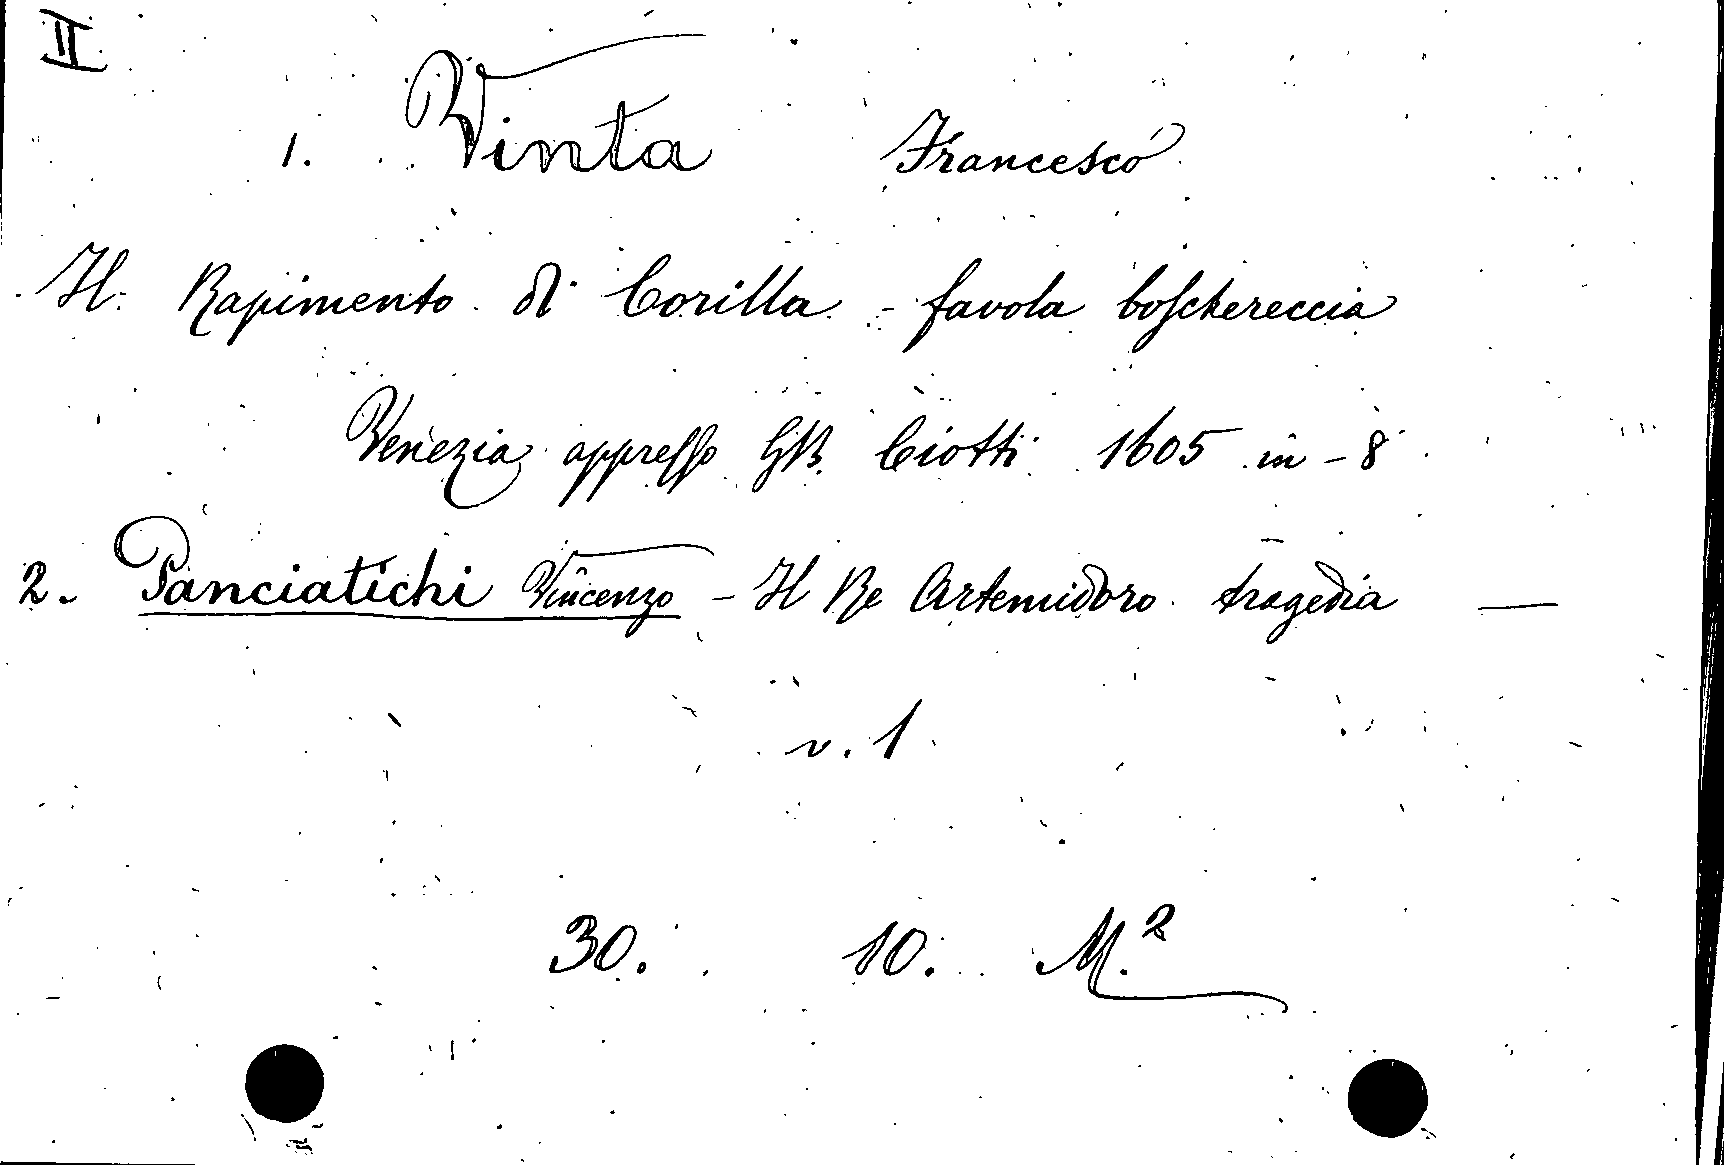 II
1. Vinta Francesco
Il Rapimento di Corilla - favola boschereccia
Venezia appresso GB. Ciotti 1605 in-8°
2. Panciatichi Vincenzo - Il Re Artemidoro tragedia —
v. 1
30. 10. M.2